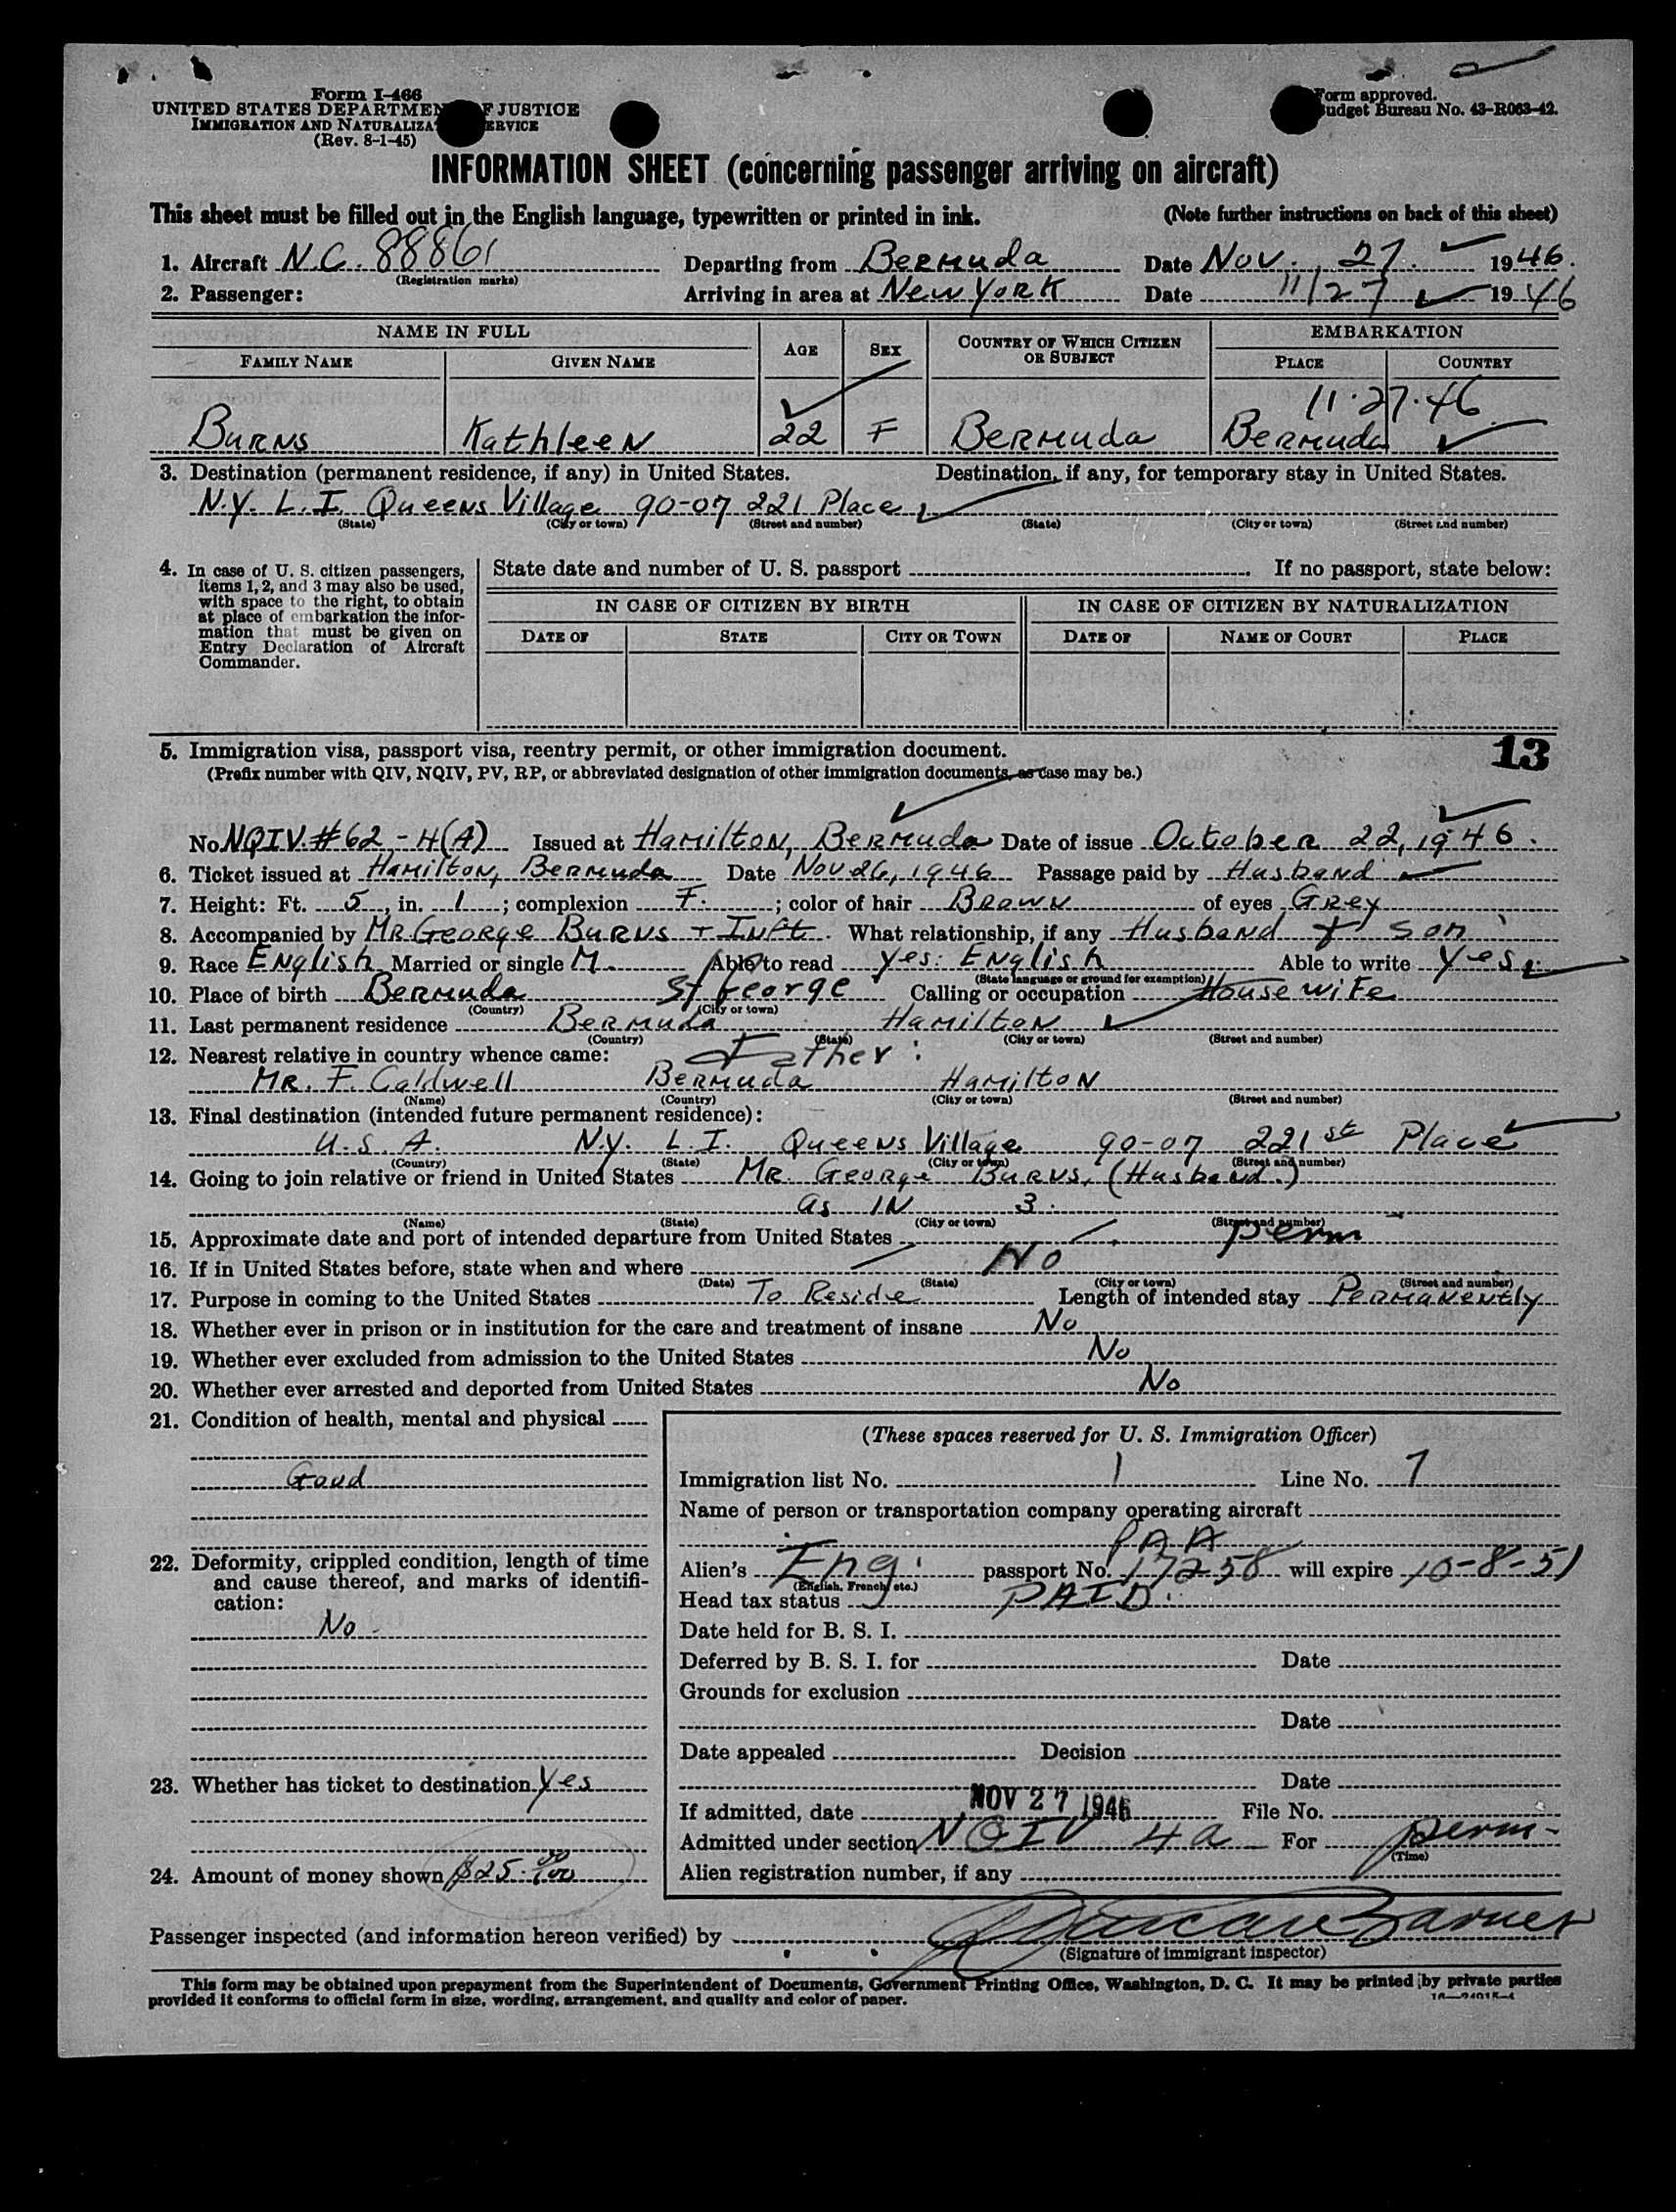 Form I-466
UNITED STATES DEPARTMEN F JUSTICE
IMMIGRATION AND NATURALIZA ERVICE
(Rev. 8-1-45)
Form approved.
Budget Bureau No. 43-R063-42.
INFORMATION SHEET (concerning passenger arriving on aircraft)
This sheet must be filled out in the English language, typewritten or printed in ink. (Note further instructions on back of this sheet)
1. Aircraft N.C. 88861 Departing from Bermuda Date Nov. 27. 1946.
(Registration marks)
2. Passenger: Arriving in area at New York Date 11/27 1946
NAME IN FULL AGE SEX COUNTRY OF WHICH CITIZEN OR SUBJECT EMBARKATION
FAMILY NAME GIVEN NAME PLACE COUNTRY
11.27.46
Burns Kathleen 22 F Bermuda Bermuda
3. Destination (permanent residence, if any) in United States. Destination, if any, for temporary stay in United States.
N.Y. L.I. Queens Village 90-07 221 Place
(State) (City or town) (Street and number) (State) (City or town) (Street and number)
4. In case of U. S. citizen passengers,
items 1, 2, and 3 may also be used,
with space to the right, to obtain
at place of embarkation the infor-
mation that must be given on
Entry Declaration of Aircraft
Commander.
State date and number of U. S. passport If no passport, state below:
IN CASE OF CITIZEN BY BIRTH IN CASE OF CITIZEN BY NATURALIZATION
DATE OF STATE CITY OR TOWN DATE OF NAME OF COURT PLACE
5. Immigration visa, passport visa, reentry permit, or other immigration document. 13
(Prefix number with QIV, NQIV, PV, RP, or abbreviated designation of other immigration documents, as case may be.)
No. NQIV. #62-4(A) Issued at Hamilton, Bermuda Date of issue October 22, 1946.
6. Ticket issued at Hamilton, Bermuda Date Nov 26, 1946 Passage paid by Husband
7. Height: Ft. 5, in. 1; complexion F.; color of hair Brown of eyes Grey
8. Accompanied by Mr George Burns + Inft. What relationship, if any Husband + Son
9. Race English Married or single M. Able to read yes: English Able to write Yes.
(State language or ground for exemption)
10. Place of birth Bermuda St George Calling or occupation Housewife
(Country) (City or town)
11. Last permanent residence Bermuda Hamilton
(Country) (State) (City or town) (Street and number)
12. Nearest relative in country whence came: Father:
Mr. F. Caldwell Bermuda Hamilton
(Name) (Country) (City or town) (Street and number)
13. Final destination (intended future permanent residence):
U.S.A. N.Y. L.I. Queens Village 90-07 221st Place
(Country) (State) (City or town) (Street and number)
14. Going to join relative or friend in United States Mr. George Burns, (Husband.)
as IN 3.
(Name) (State) (City or town) (Street and number)
15. Approximate date and port of intended departure from United States perm
16. If in United States before, state when and where No
(Date) (State) (City or town) (Street and number)
17. Purpose in coming to the United States To Reside Length of intended stay Permanently
18. Whether ever in prison or in institution for the care and treatment of insane No
19. Whether ever excluded from admission to the United States No
20. Whether ever arrested and deported from United States No
21. Condition of health, mental and physical
Good
22. Deformity, crippled condition, length of time
and cause thereof, and marks of identifi-
cation:
No
23. Whether has ticket to destination Yes
24. Amount of money shown $25.00/00
(These spaces reserved for U. S. Immigration Officer)
Immigration list No. 1 Line No. 7
Name of person or transportation company operating aircraft
PAA
Alien's Eng. passport No. 17258 will expire 10-8-51
(English, French, etc.)
Head tax status PAID.
Date held for B. S. I.
Deferred by B. S. I. for Date
Grounds for exclusion
Date
Date appealed Decision
Date
If admitted, date NOV 27 1946 File No.
Admitted under section NQIV 4a For perm-
(Time)
Alien registration number, if any
Passenger inspected (and information hereon verified) by
(Signature of immigrant inspector)
This form may be obtained upon prepayment from the Superintendent of Documents, Government Printing Office, Washington, D. C. It may be printed by private parties
provided it conforms to official form in size, wording, arrangement, and quality and color of paper.